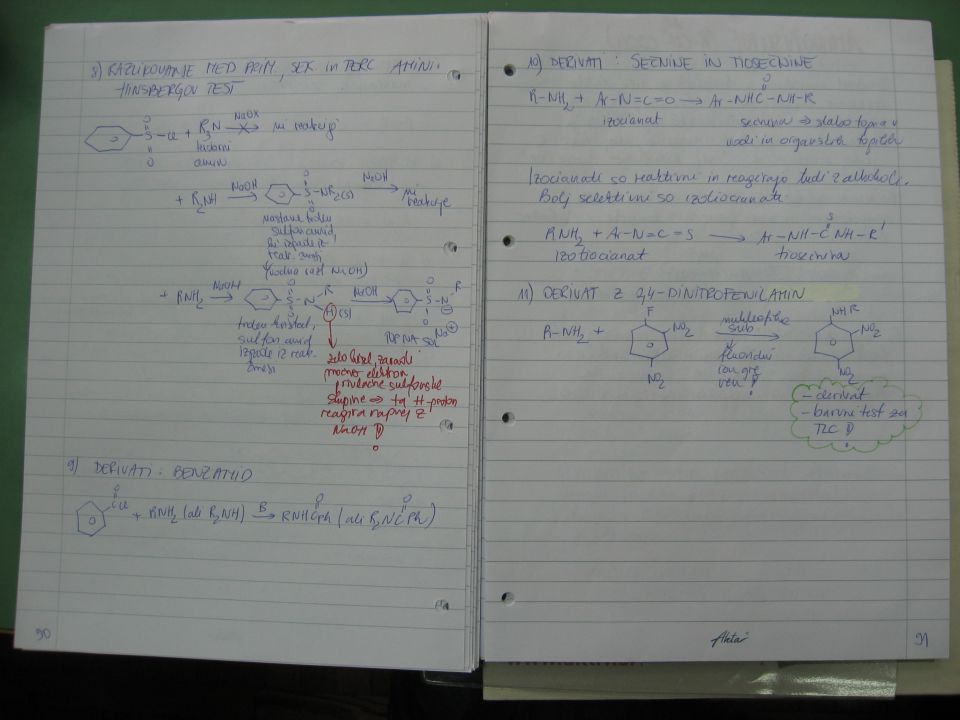 8) RAZLIKOVANJE MED PRIM., SEK. in TERC AMINI:
HINSBERGOV TEST
O
S
O
Cl + R3N NaOX ni reakcije
terciarni
amin
+ R2NH NaOH S-NR2(s) NaOH ni
reakcije
nastane trden
sulfonamid,
ki izpade iz
reak. zmesi
(vodna razt NaOH)
+ RNH2 NaOH S-N R NaOH S-N R
H (s)
Na
trden kristal,
sulfonamid
izpade iz reak.
zmesi
zelo kisel, zaradi
močne elektron
privlačne sulfonske
skupine => ta H-proton
reagira naprej z
NaOH !
9) DERIVATI: BENZAMID
O
CCl
+ RNH2 (ali R2NH) B → RNHCPh (ali R2NCPh)
90
10) DERIVATI: SEČNINE IN TIOSEČNINE
R-NH2 + Ar-N=C=O → Ar-NHC-NH-R
izocianat sečnina => slabo topna v
vodi in organskih topilih
Izocianati so reaktivni in reagirajo tudi z alkoholi.
Bolj selektivni so izotiocianati.
RNH2 + Ar-N=C=S → Ar-NH-C NH-R'
izotiocianat tiosečnina
11) DERIVAT Z 2,4-DINITROFENILAMIN
R-NH2 +
F
NO2
NO2
nukleofilna
sub
fluoridni
ion gre
ven !
NHR
NO2
NO2
- derivat
- barvni test za
TLC !
Aktai
91